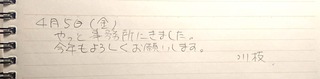 4月5日(金)
やっと事務所にきました。
今年もよろしくお願いします。
川枝